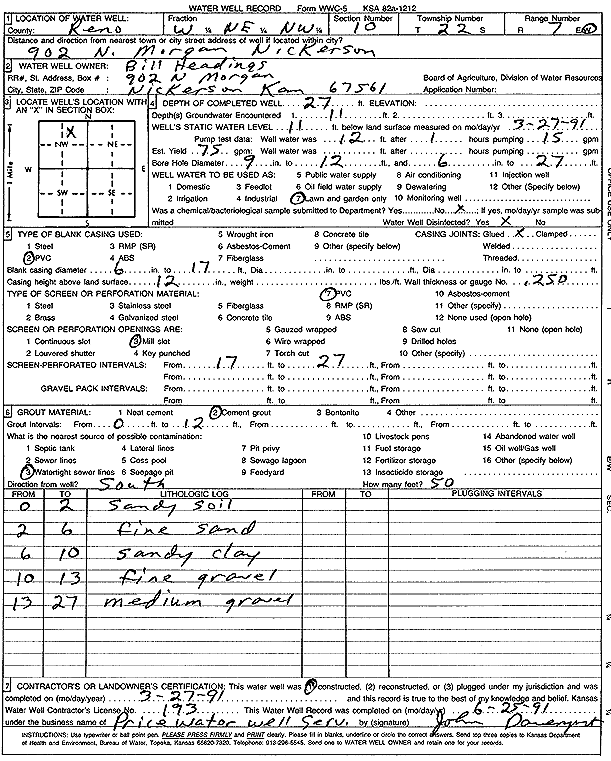 WATER WELL RECORD Form WWC-5 KSA 82a-1212
1 LOCATION OF WATER WELL: Fraction Section Number Township Number Range Number
County: Reno W ¼ NE ¼ NW ¼ 10 T 22 S R 7 E/W
Distance and direction from nearest town or city street address of well if located within city?
902 N. Morgan Nickerson
2 WATER WELL OWNER: Bill Headings
RR#, St. Address, Box # : 902 N Morgan Board of Agriculture, Division of Water Resources
City, State, ZIP Code : Nickerson Kan 67561 Application Number:
3 LOCATE WELL'S LOCATION WITH AN "X" IN SECTION BOX:
N
X
NW NE
W E
SW SE
S
1 Mile
4 DEPTH OF COMPLETED WELL 27 ft. ELEVATION:
Depth(s) Groundwater Encountered 1 11 ft. 2 ft. 3 ft.
WELL'S STATIC WATER LEVEL 11 ft. below land surface measured on mo/day/yr 3-27-91
Pump test data: Well water was 12 ft. after 1 hours pumping 15 gpm
Est. Yield 75 gpm: Well water was ft. after hours pumping gpm
Bore Hole Diameter 9 in. to 12 ft., and 6 in. to 27 ft.
WELL WATER TO BE USED AS: 5 Public water supply 8 Air conditioning 11 Injection well
1 Domestic 3 Feedlot 6 Oil field water supply 9 Dewatering 12 Other (Specify below)
2 Irrigation 4 Industrial 7 Lawn and garden only 10 Monitoring well
Was a chemical/bacteriological sample submitted to Department? Yes No X ; If yes, mo/day/yr sample was submitted
Water Well Disinfected? Yes X No
5 TYPE OF BLANK CASING USED: 5 Wrought iron 8 Concrete tile CASING JOINTS: Glued X Clamped
1 Steel 3 RMP (SR) 6 Asbestos-Cement 9 Other (specify below) Welded
2 PVC 4 ABS 7 Fiberglass Threaded
Blank casing diameter 6 in. to 17 ft., Dia in. to ft., Dia in. to ft.
Casing height above land surface 12 in., weight lbs./ft. Wall thickness or gauge No. .250
TYPE OF SCREEN OR PERFORATION MATERIAL: 7 PVC 10 Asbestos-cement
1 Steel 3 Stainless steel 5 Fiberglass 8 RMP (SR) 11 Other (specify)
2 Brass 4 Galvanized steel 6 Concrete tile 9 ABS 12 None used (open hole)
SCREEN OR PERFORATION OPENINGS ARE: 5 Gauzed wrapped 8 Saw cut 11 None (open hole)
1 Continuous slot 3 Mill slot 6 Wire wrapped 9 Drilled holes
2 Louvered shutter 4 Key punched 7 Torch cut 10 Other (specify)
SCREEN-PERFORATED INTERVALS: From 17 ft. to 27 ft., From ft. to ft.
From ft. to ft., From ft. to ft.
GRAVEL PACK INTERVALS: From ft. to ft., From ft. to ft.
From ft. to ft., From ft. to ft.
6 GROUT MATERIAL: 1 Neat cement 2 Cement grout 3 Bentonite 4 Other
Grout Intervals: From 0 ft. to 12 ft., From ft. to ft., From ft. to ft.
What is the nearest source of possible contamination: 10 Livestock pens 14 Abandoned water well
1 Septic tank 4 Lateral lines 7 Pit privy 11 Fuel storage 15 Oil well/Gas well
2 Sewer lines 5 Cess pool 8 Sewage lagoon 12 Fertilizer storage 16 Other (specify below)
3 Watertight sewer lines 6 Seepage pit 9 Feedyard 13 Insecticide storage
Direction from well? South How many feet? 50
FROM TO LITHOLOGIC LOG FROM TO PLUGGING INTERVALS
0 2 sandy soil
2 6 fine sand
6 10 sandy clay
10 13 fine gravel
13 27 medium gravel
7 CONTRACTOR'S OR LANDOWNER'S CERTIFICATION: This water well was (1) constructed, (2) reconstructed, or (3) plugged under my jurisdiction and was
completed on (mo/day/year) 3-27-91 and this record is true to the best of my knowledge and belief. Kansas
Water Well Contractor's License No. 193 This Water Well Record was completed on (mo/day/yr) 6-25-91
under the business name of Price water well Serv. by (signature) John Davenport
INSTRUCTIONS: Use typewriter or ball point pen. PLEASE PRESS FIRMLY and PRINT clearly. Please fill in blanks, underline or circle the correct answers. Send top three copies to Kansas Department
of Health and Environment, Bureau of Water, Topeka, Kansas 66620-7320. Telephone: 913-296-5545. Send one to WATER WELL OWNER and retain one for your records.